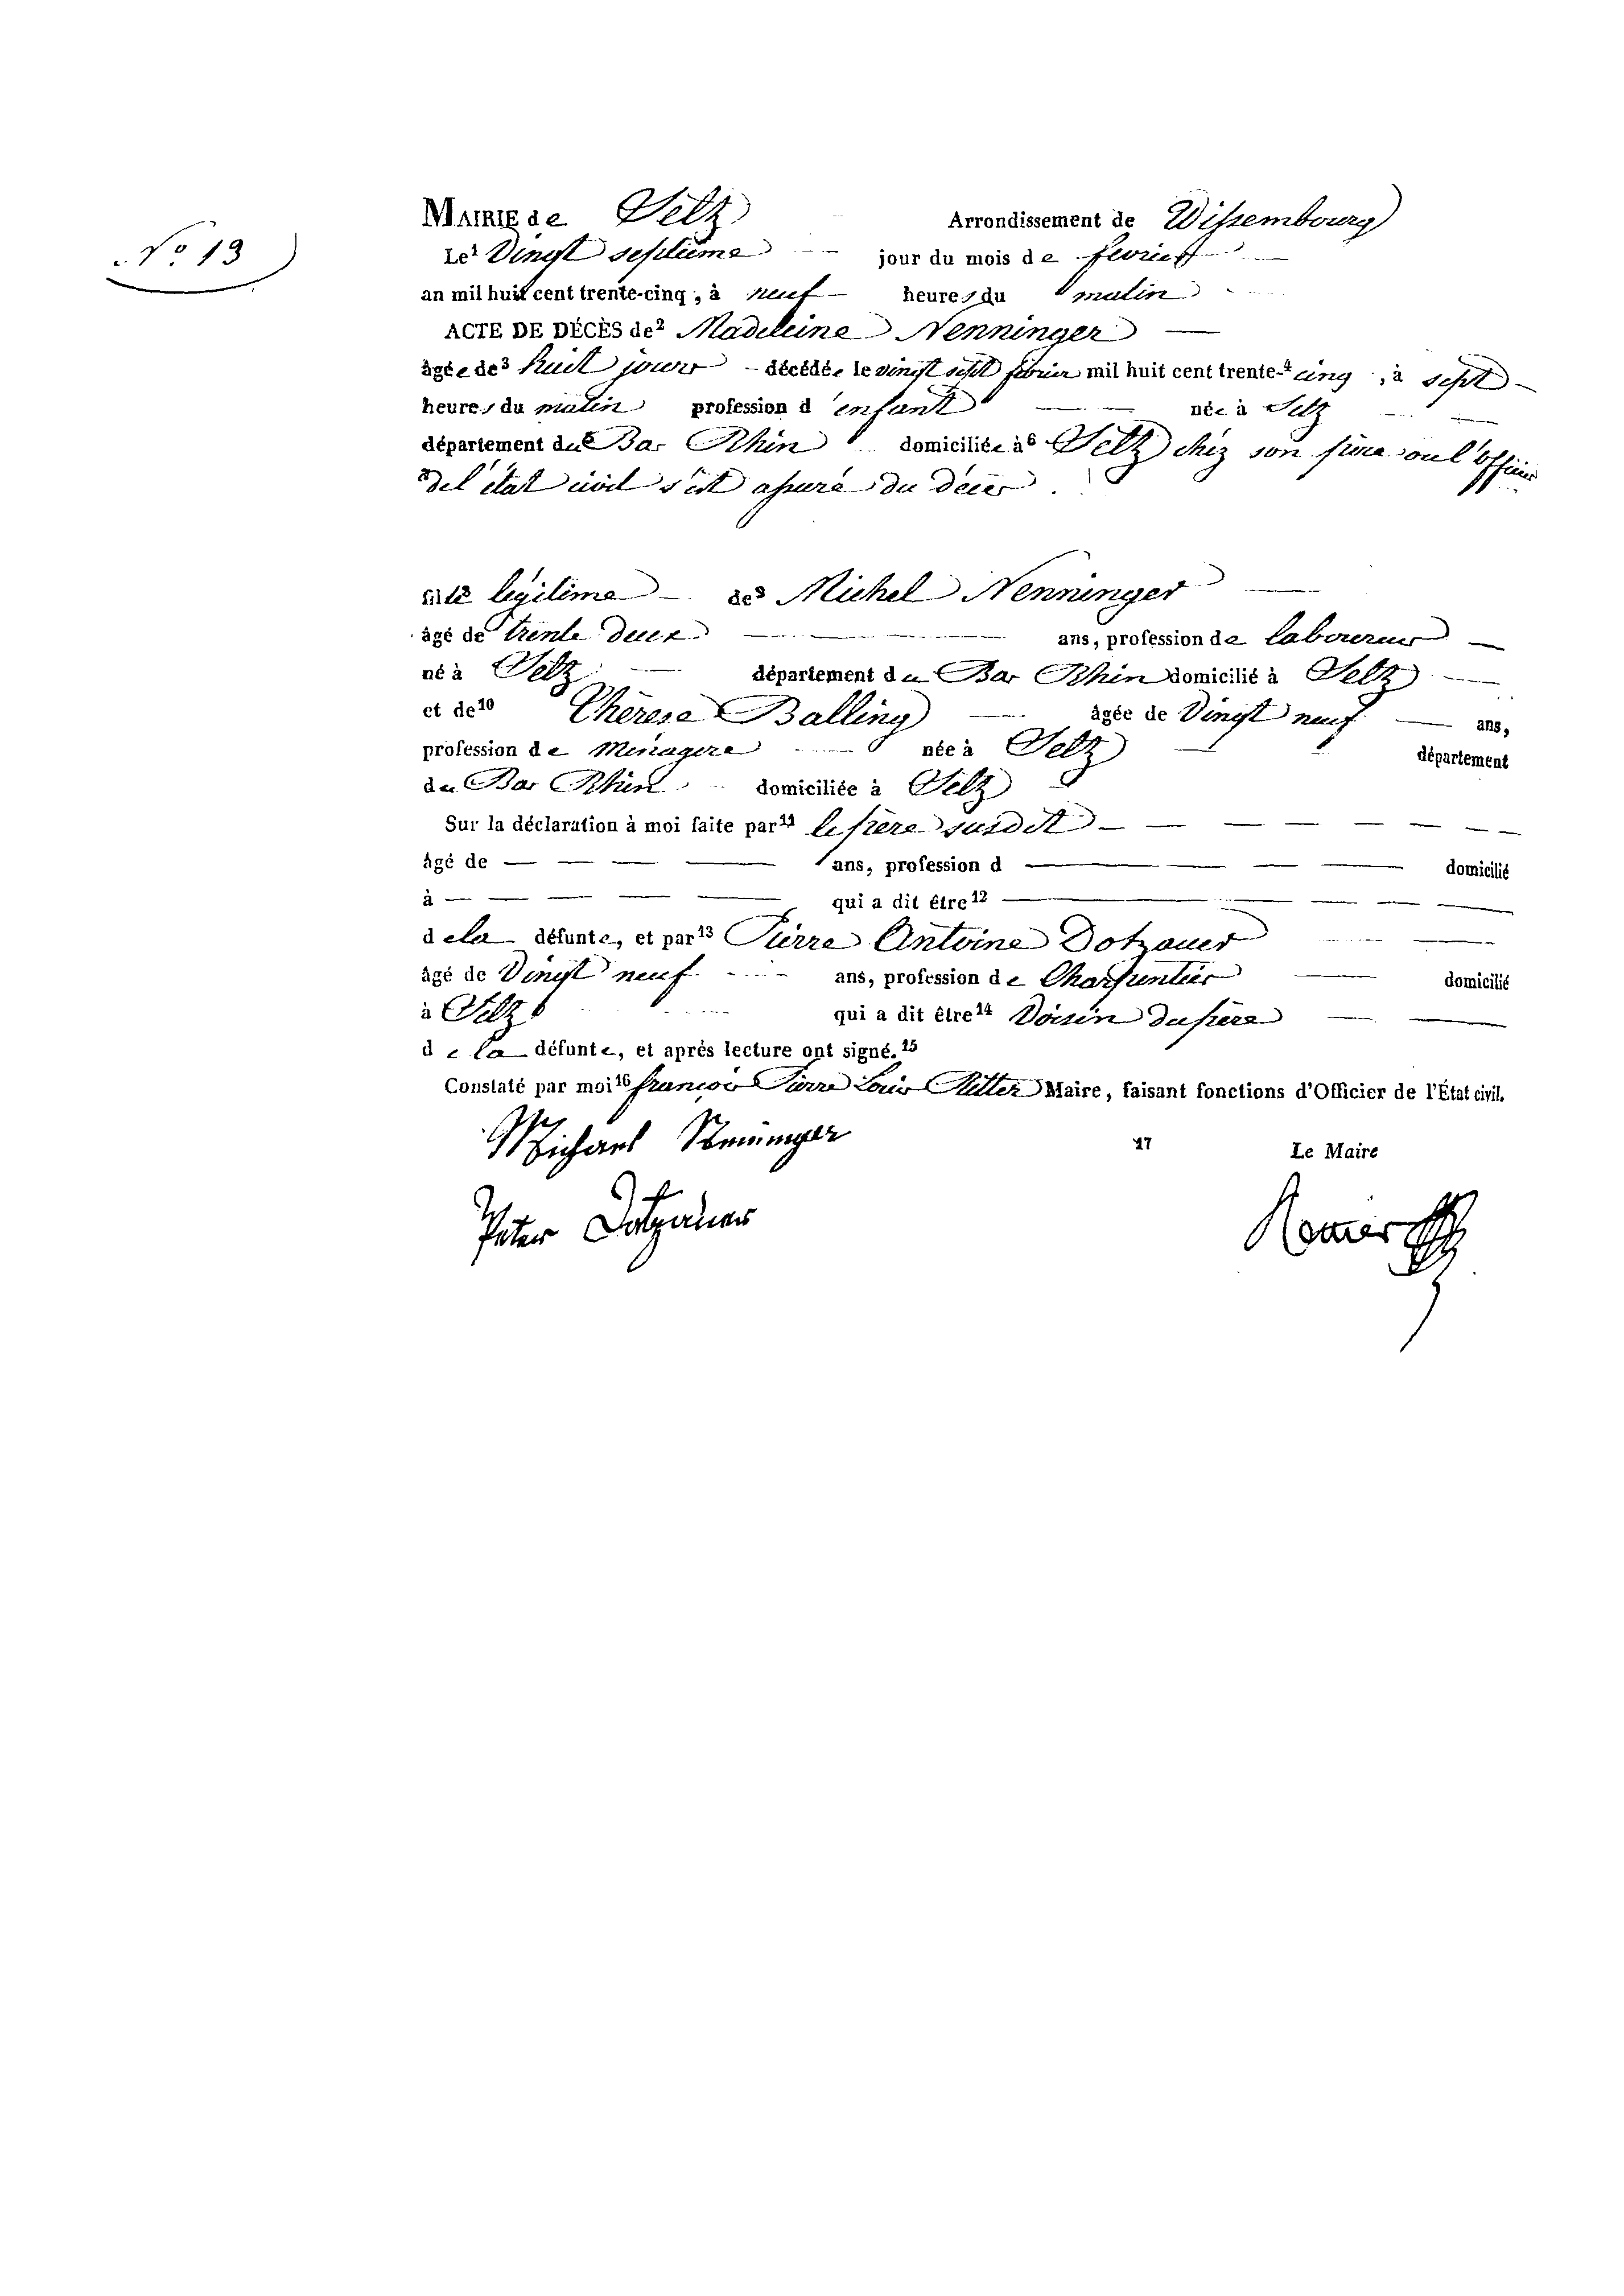 No 13
MAIRIE de Selz Arrondissement de Wissembourg
Le1 Vingt septième jour du mois de fevrier
an mil huit cent trente-cinq, à neuf heures du matin
ACTE DE DÉCÈS de2 Madeleine Nenninger
âgée de3 huit jours décédée le vingt sept fevrier mil huit cent trente-4 cinq, à sept
heures du matin profession d'enfant née à Selz
département du Bas Rhin domiciliée à6 Selz chez son père ou l'officier
de l'état civil s'est assuré du décès.
fille légitime de9 Michel Nenninger
âgé de trente deux ans, profession de laboureur
né à Selz département du Bas Rhin domicilié à Selz
et de10 Thérèse Balling âgée de Vingt neuf ans,
profession de Ménagère née à Selz département
du Bas Rhin domiciliée à Selz
Sur la déclaration à moi faite par11 le père susdit
âgé de ans, profession d domicilié
à qui a dit être12
de la défunte, et par13 Pierre Antoine Dotzauer
âgé de Vingt neuf ans, profession de Charpentier domicilié
à Selz qui a dit être14 Voisin du père
de la défunte, et après lecture ont signé.15
Constaté par moi16 françois Pierre Louis Ritter Maire, faisant fonctions d'Officier de l'État civil.
Michael Nenninger 17 Le Maire
Peter Dotzauer